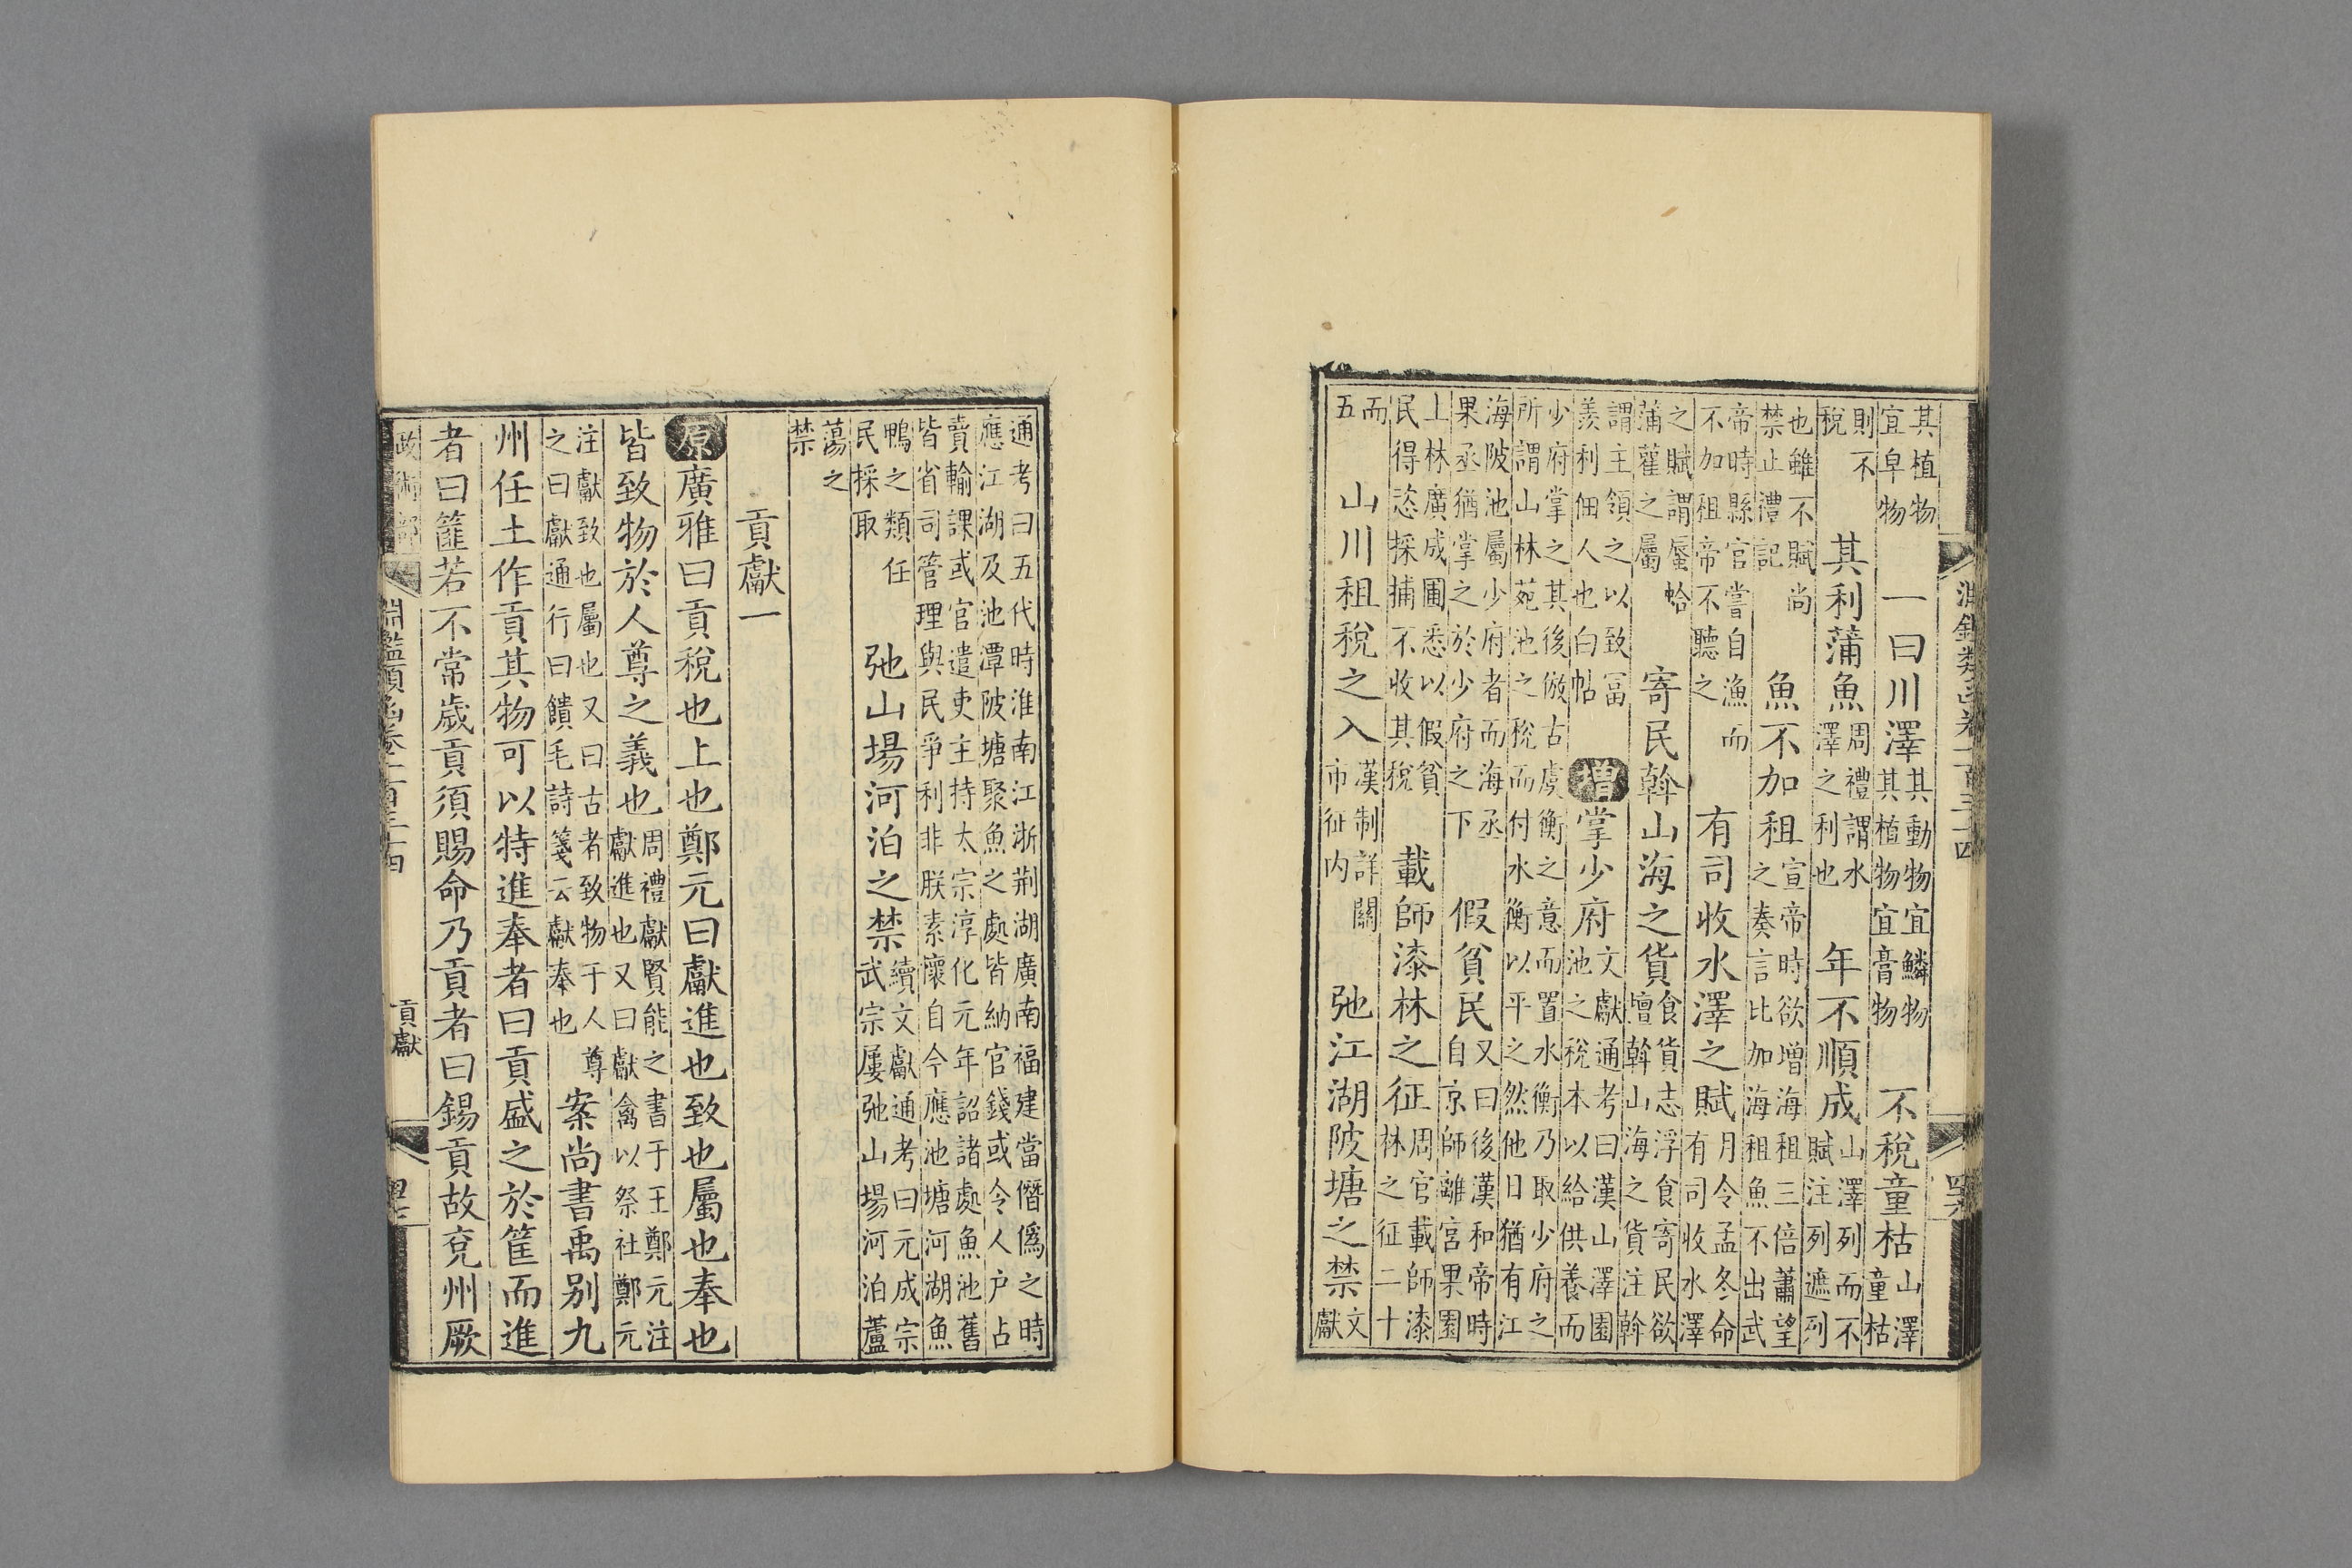 淵鑑類函卷一百三十四
其植物宜阜物　一曰川澤其動物宜鱗物其植物宜膏物　不稅童枯山澤童枯
則不稅　其利蒲魚周禮謂水澤之利也　年不順成山澤列而不賦注列遮列
也雖不賦尚禁止禮記　魚不加租宣帝時欲增海租三倍蕭望之奏言比加海租魚不出武
帝時縣官嘗自漁而不加租帝不聽之　有司收水澤之賦月令孟冬命有司收水澤
之賦謂蜃蛤蒲雚之屬　寄民斡山海之貨食貨志浮食寄民欲壇斡山海之貨注斡
謂主領之以致富羨利佃人也白帖　增掌少府文獻通考曰漢山澤園池之稅本以給供養而
少府掌之其後倣古虞衡之意而置水衡乃取少府之所謂山林苑池之稅而付水衡以平之然他日猶有江
海陂池屬少府者而海丞果丞猶掌之於少府之下　假貧民又曰後漢和帝時自京師離宮果園
上林廣成圃悉以假貧民得恣採捕不收其稅　載師漆林之征周官載師漆林之征二十
而五　山川租稅之入漢制詳關市征内　弛江湖陂塘之禁文獻
通考曰五代時淮南江浙荆湖廣南福建當僭僞之時應江湖及池潭陂塘聚魚之處皆納官錢或令人户占
賣輸課或官遣吏主持太宗淳化元年詔諸處魚池舊皆省司管理與民爭利非朕素懷自今應池塘河湖魚
鴨之類任民採取　弛山場河泊之禁續文獻通考曰元成宗武宗屢弛山場河泊蘆
蕩之禁
貢獻一
原廣雅曰貢稅也上也鄭元曰獻進也致也屬也奉也
皆致物於人尊之義也周禮獻賢能之書于王鄭元注獻進也又曰獻禽以祭社鄭元
注獻致也屬也又曰古者致物于人尊之曰獻通行曰饋毛詩箋云獻奉也　案尚書禹别九
州任土作貢其物可以特進奉者曰貢盛之於筐而進
者曰篚若不常歲貢須賜命乃貢者曰錫貢故兗州厥
政術部　淵鑑類函卷一百三十四　貢獻